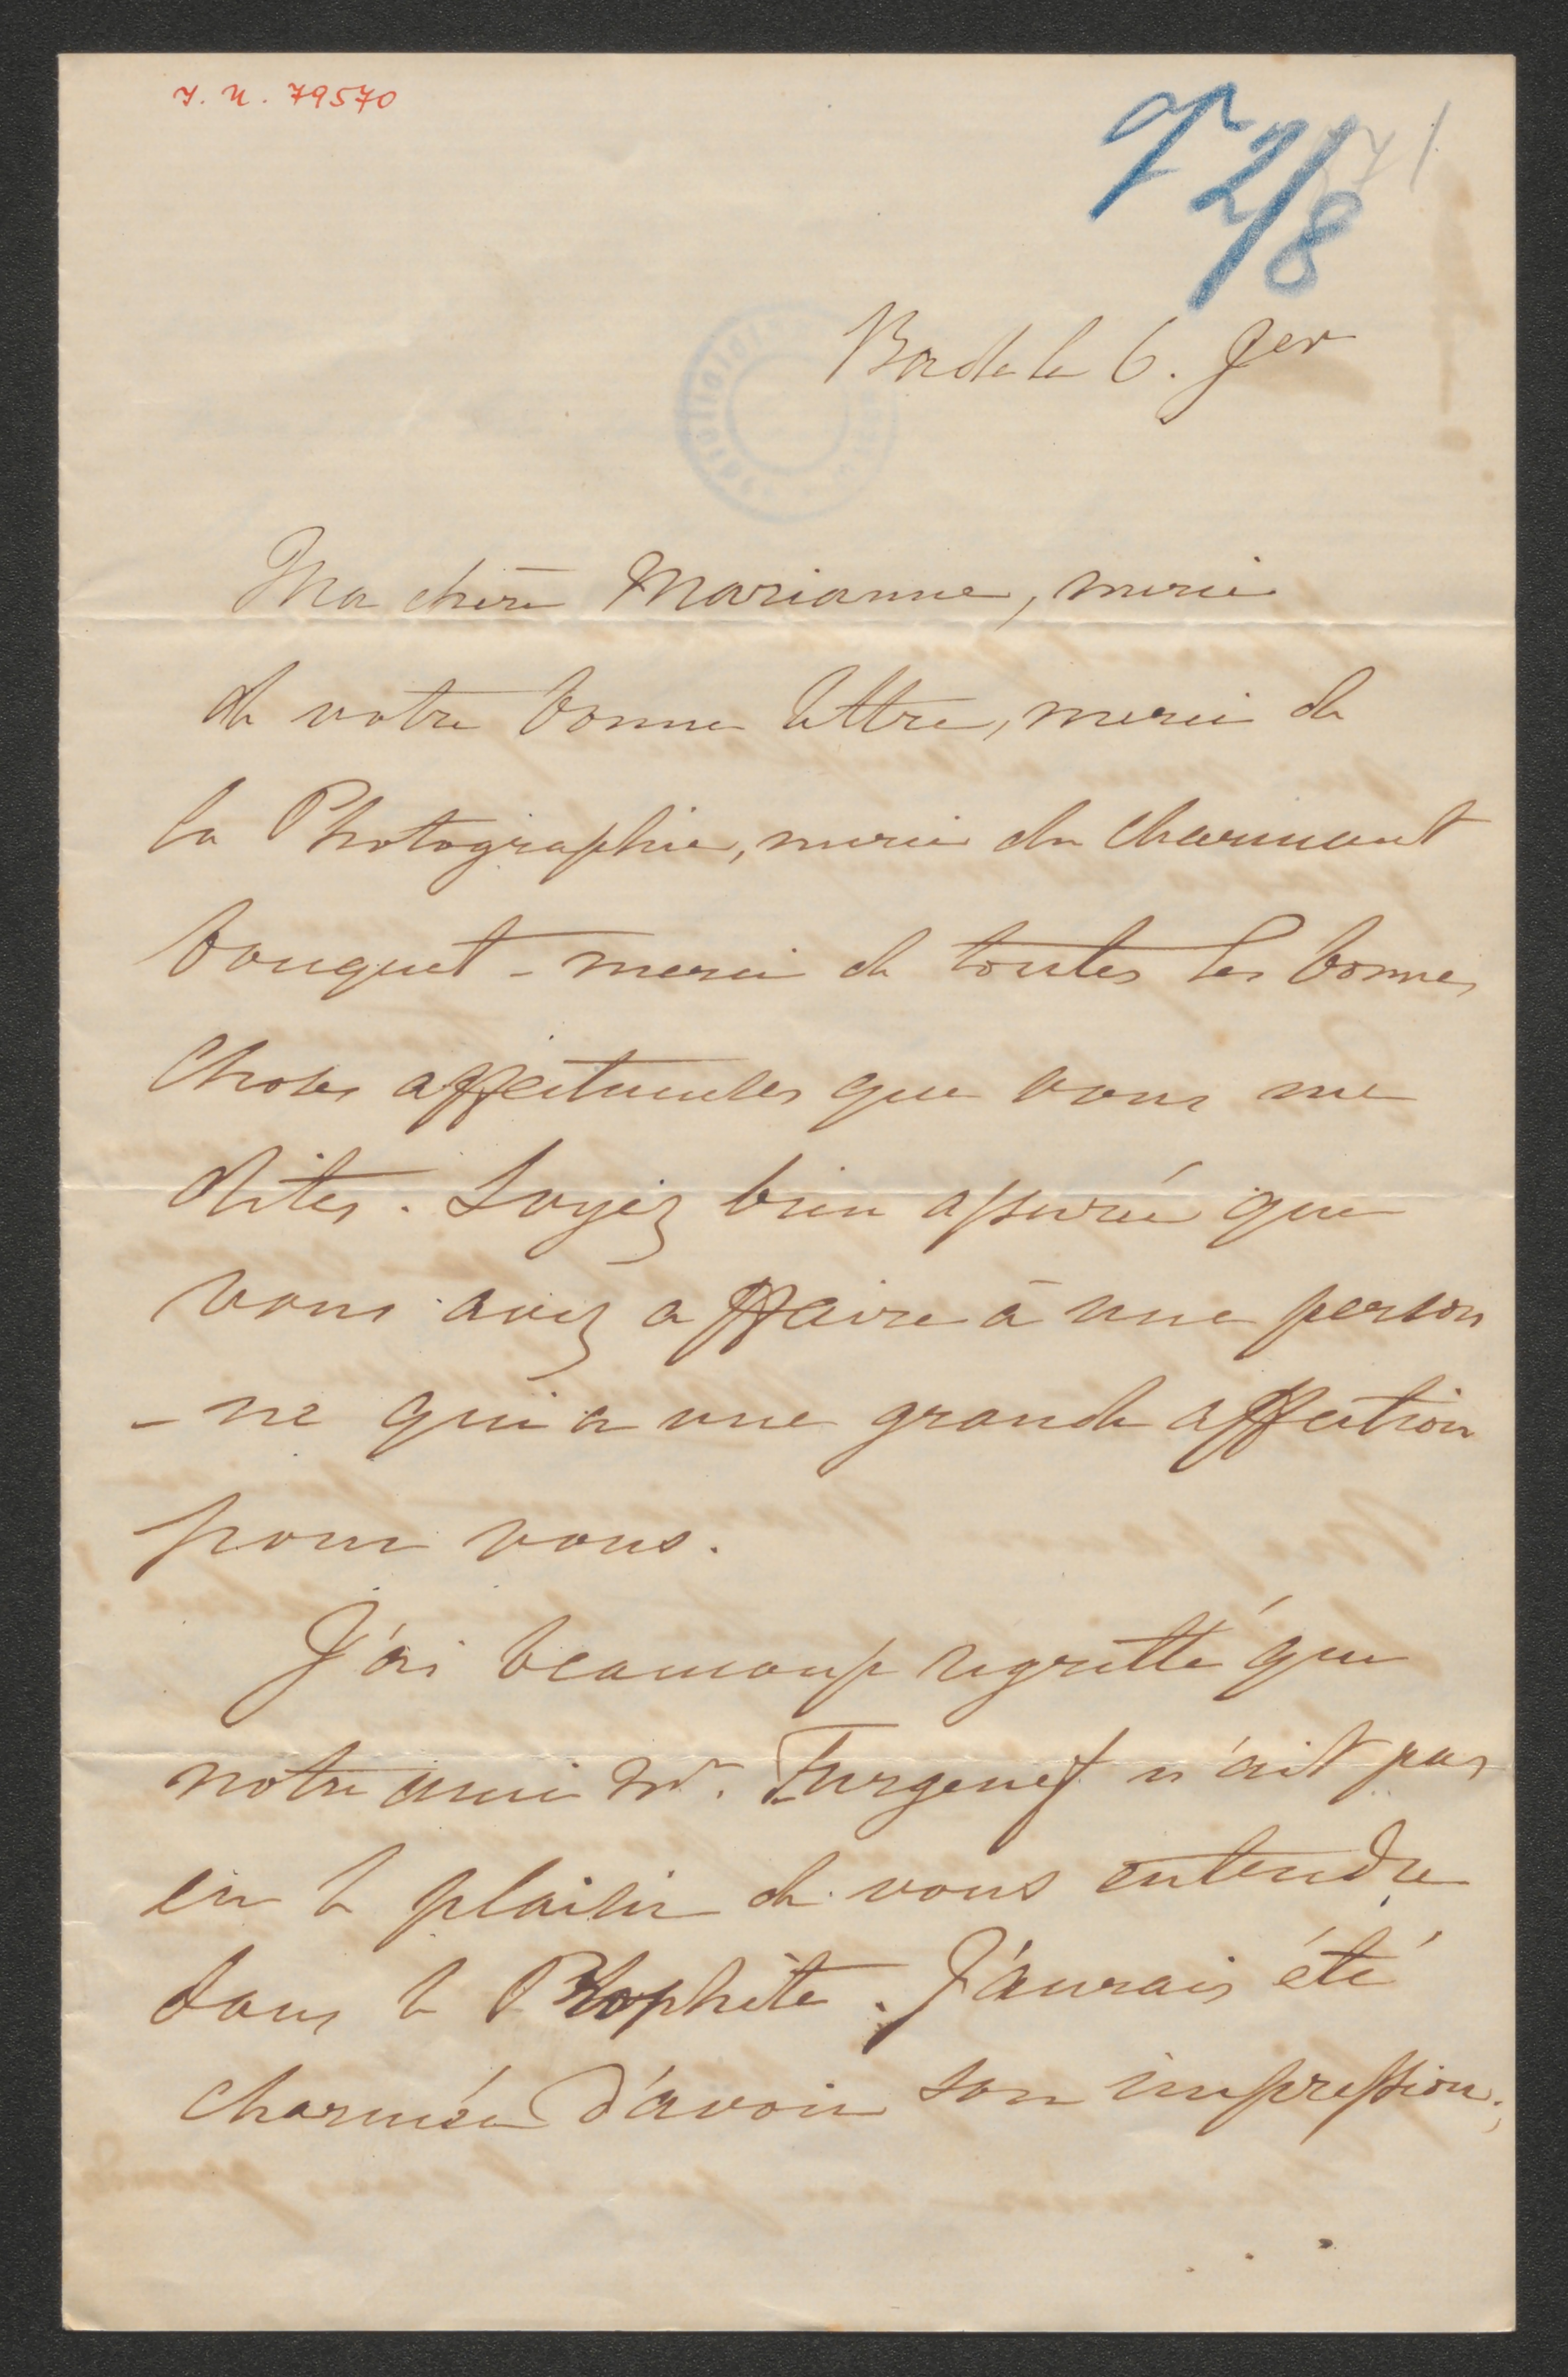 J. N. 79570
72/8
71
Bade le 6. Jer
Ma chère Marianne, merci
de votre bonne lettre, merci de
la Photographie, merci du charmant
bouquet - merci de toutes les bonnes
choses affectueuses que vous me
dites. Soyez bien assurée que
vous avez affaire à une person
- ne qui a une grande affection
pour vous.
J'ai beaucoup regretté que
notre ami Mr. Turgenef n'ait pas
eu le plaisir de vous entendre
dans le Prophète. J'aurais été
charmée d'avoir son impression;